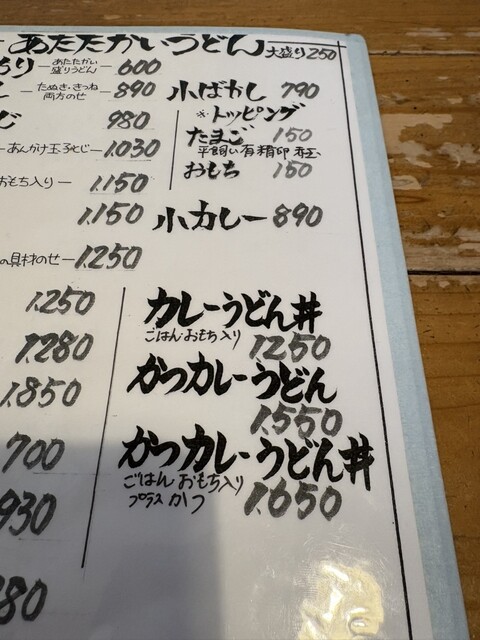 あたたかいうどん 大盛り250
り あたたかい 盛りうどん 600
たぬき・きつね 両方のせ 890
じ 980
あんかけ玉子とじ 1.030
おもち入り 1.150
1.150
の具材のせ 1.250
1.250
1.280
1.850
700
930
80
小ばかし 790
※トッピング
たまご 150
平飼い有精卵
おもち 150
小カレー 890
カレーうどん丼
ごはん おもち入り 1250
かつカレーうどん
1.550
かつカレーうどん丼
ごはん おもち入り
プラス かつ 1.650